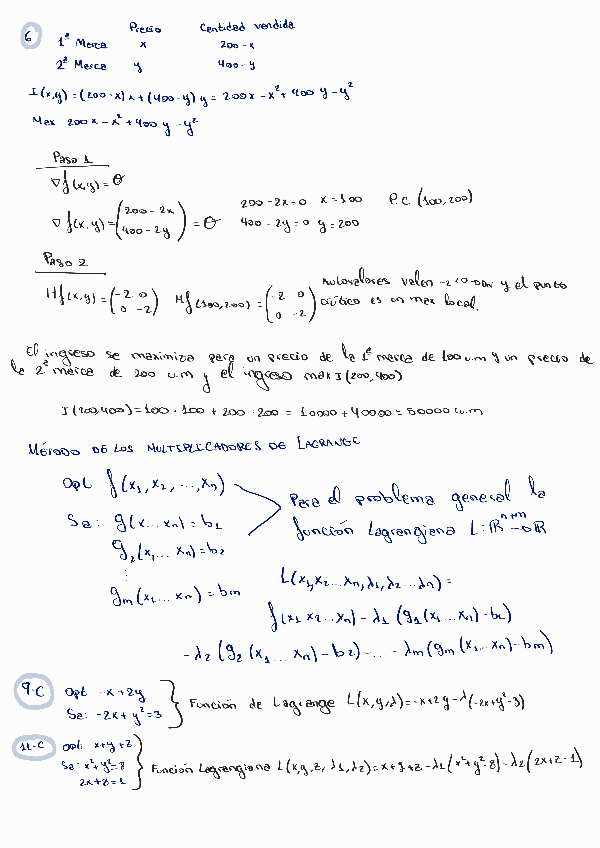 6 Precio Cantidad vendida
1ª Merca x 200-x
2ª Merca y 400-y
I(x,y)=(200-x)x+(400-y)y = 200x-x²+400y-y²
Max 200x-x²+400y-y²
Paso 1
∇f(x,y)=Θ
∇f(x,y)=(200-2x 400-2y)=Θ 200-2x=0 x=100 P.C (100,200)
400-2y=0 y=200
Paso 2
Hf(x,y)=(-2 0 0 -2) Hf(100,200)=(-2 0 0 -2) Autovalores valen -2<0 y el punto
crítico es un max local.
El ingreso se maximiza para un precio de la 1ª merca de 100 u.m y un precio de
la 2ª merca de 200 u.m y el ingreso max I(200,400)
I(200,400)=100·100+200·200=10000+40000=50000 u.m
MÉTODO DE LOS MULTIPLICADORES DE LAGRANGE
Opt f(x₁,x₂,...,xₙ)
Sa: g(x...xₙ)=b₁
g₂(x₁...xₙ)=b₂
⋮
gₘ(x₁...xₙ)=bₘ
Para el problema general la
función Lagrangiana L:ℝⁿ⁺ᵐ→ℝ
L(x₁,x₂...xₙ,λ₁,λ₂...λₙ)=
f(x₁ x₂...xₙ)-λ₁(g₁(x₁...xₙ)-b₁)
-λ₂(g₂(x₁...xₙ)-b₂)-...-λₘ(gₘ(x₁...xₙ)-bₘ)
9.C Opt -x+2y
Sa: -2x+y²=3
Función de Lagrange L(x,y,λ)=-x+2y-λ(-2x+y²-3)
11-C Opt: x+y+z
Sa: x²+y²=8
2x+z=1
Función Lagrangiana L(x,y,z,λ₁,λ₂)=x+y+z-λ₁(x²+y²-8)-λ₂(2x+z-1)